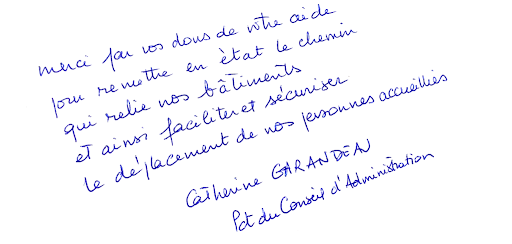 merci par vos dons de votre aide
pour remettre en état le chemin
qui relie nos bâtiments
et ainsi faciliter et sécuriser
le déplacement de nos personnes accueillies
Catherine GARANDEAU
Pdt du Conseil d'Administration